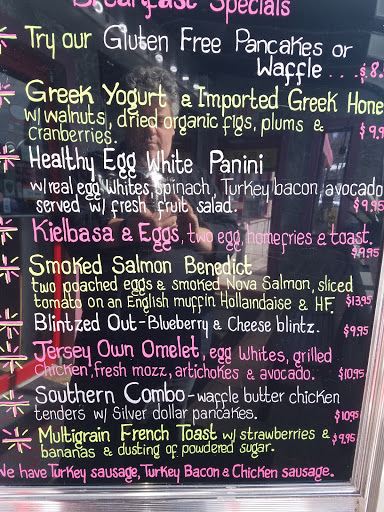 Breakfast Specials
Try our Gluten Free Pancakes or
Waffle ... $8.
Greek Yogurt & Imported Greek Hone
w/ walnuts, dried organic figs, plums &
cranberries. $9.9
Healthy Egg White Panini
w/ real egg whites, spinach, Turkey bacon, avocado
served w/ fresh fruit salad. $9.95
Kielbasa & Eggs, two egg, homefries & toast.
$9.95
Smoked Salmon Benedict
two poached eggs & smoked Nova Salmon, sliced
tomato on an English muffin, Hollaindaise & HF. $13.95
Blintzed Out - Blueberry & Cheese blintz. $9.95
Jersey Own Omelet, egg whites, grilled
chicken, fresh mozz, artichokes & avocado. $10.95
Southern Combo - waffle butter chicken
tenders w/ Silver dollar pancakes. $10.95
Multigrain French Toast w/ strawberries & $9.95
bananas & dusting of powdered sugar.
We have Turkey sausage, Turkey Bacon & Chicken sausage.